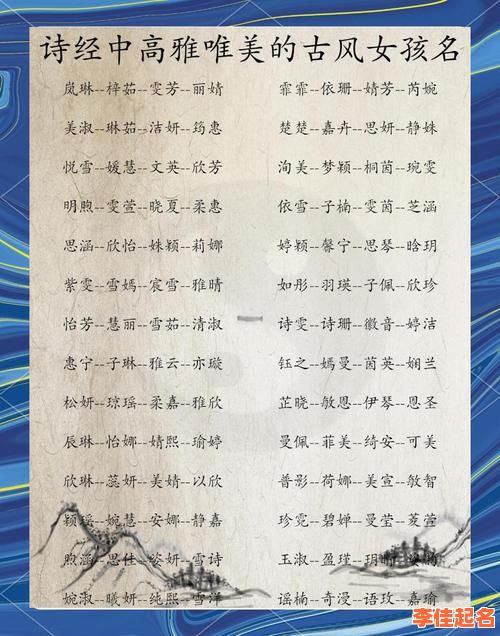 诗经中高雅唯美的古风女孩名
岚琳--梓茹--雯芳--丽婧
霏霏--依珊--婧芳--芮婉
美淑--琳茹--洁妍--筠惠
楚楚--嘉卉--思妍--静姝
悦雪--媛慧--文英--欣芳
洵美--梦颖--桐茵--琬雯
明煦--雯萱--晓夏--柔惠
依雪--子楠--雯茵--芝涵
思涵--欣怡--姝颖--莉娜
婷颖--馨宁--思琴--晗玥
紫雯--雪嫣--宸雪--雅晴
如彤--羽瑛--子佩--欣珍
怡芳--慧丽--雪茹--清淑
诗雯--诗珊--徽音--婷洁
惠宁--子琳--雅云--亦璇
钰之--嫣曼--茵英--娴兰
松妍--琼瑶--柔嘉--雅欣
芷晓--敏恩--伊琴--恩圣
辰琳--怡娜--婧熙--瑜婷
曼佩--菲美--绮安--可美
欣琳--蕊妍--美婧--以欣
普影--荷娜--美宣--敏智
颖瑶--婉慧--安娜--静嘉
珍霓--碧婵--曼莹--菱萱
煦涵--思佳--姿妍--雪诗
玉淑--盈瑾--玥
婉淑--曦妍--纯熙--雪洋
谣楠--奇漫--语玫--嘉瑜
李佳起名